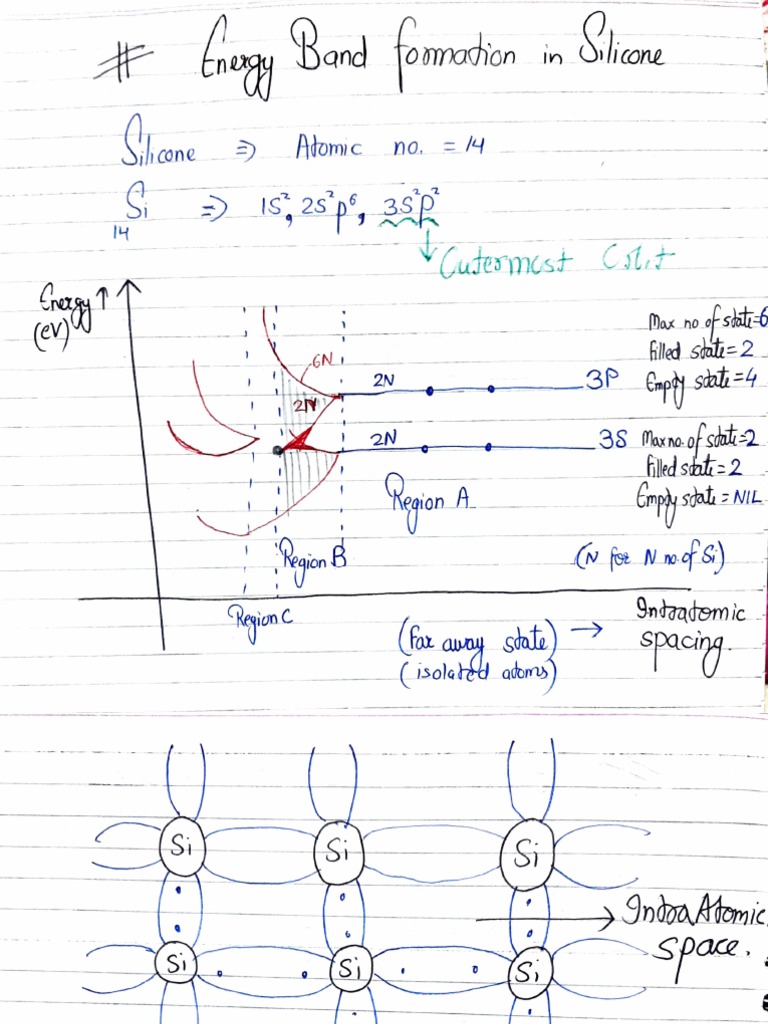 # Energy Band formation in Silicone
Silicone ⇒ Atomic no. = 14
₁₄Si ⇒ 1S², 2S²p⁶, 3S²p²
↓ Outermost Orbit
Energy ↑
(eV)
6N
2N
2N
3P
Max no of state=6
filled state=2
Empty state=4
2N
3S
Max no. of state=2
filled state=2
Empty state=NIL
Region A
Region B
(N for N no. of Si)
Region C
(far away state) →
(isolated atoms)
Intraatomic
spacing.
Si Si Si
Intra Atomic
space.
Si Si Si